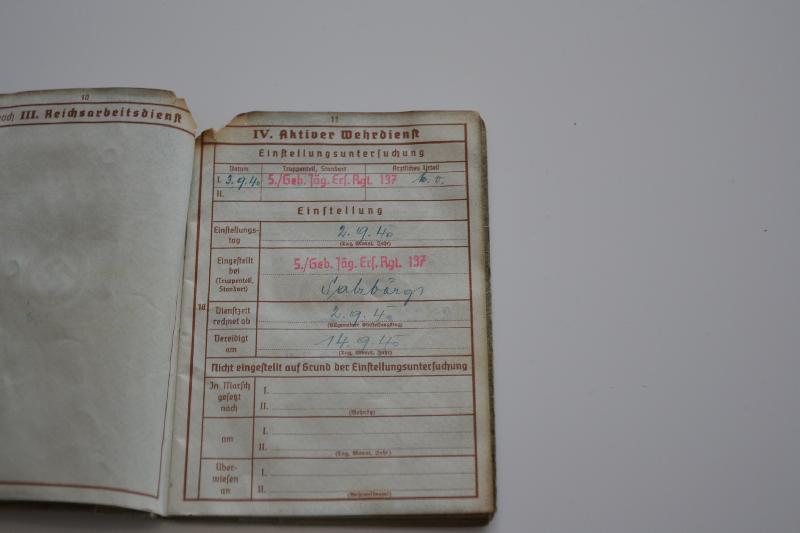 10
noch III. Reichsarbeitsdienst
11
IV. Aktiver Wehrdienst
Einstellungsuntersuchung
Datum Truppenteil, Standort Ärztliches Urteil
I. 3.9.40 5./Geb. Jäg. Ers. Rgt. 137 k.v.
II.
Einstellung
Einstellungs-
tag
2.9.40
(Tag, Monat, Jahr)
Eingestellt
bei
(Truppenteil,
Standort)
5./Geb. Jäg. Ers. Rgt. 137
Salzburg
18
Dienstzeit
rechnet ab
2.9.40
(Allgemeiner Einstellungstag)
Vereidigt
am
14.9.40
(Tag, Monat, Jahr)
Nicht eingestellt auf Grund der Einstellungsuntersuchung
In Marsch
gesetzt
nach
I.
II.
am
I.
II.
(Tag, Monat, Jahr)
Über-
wiesen
an
I.
II.